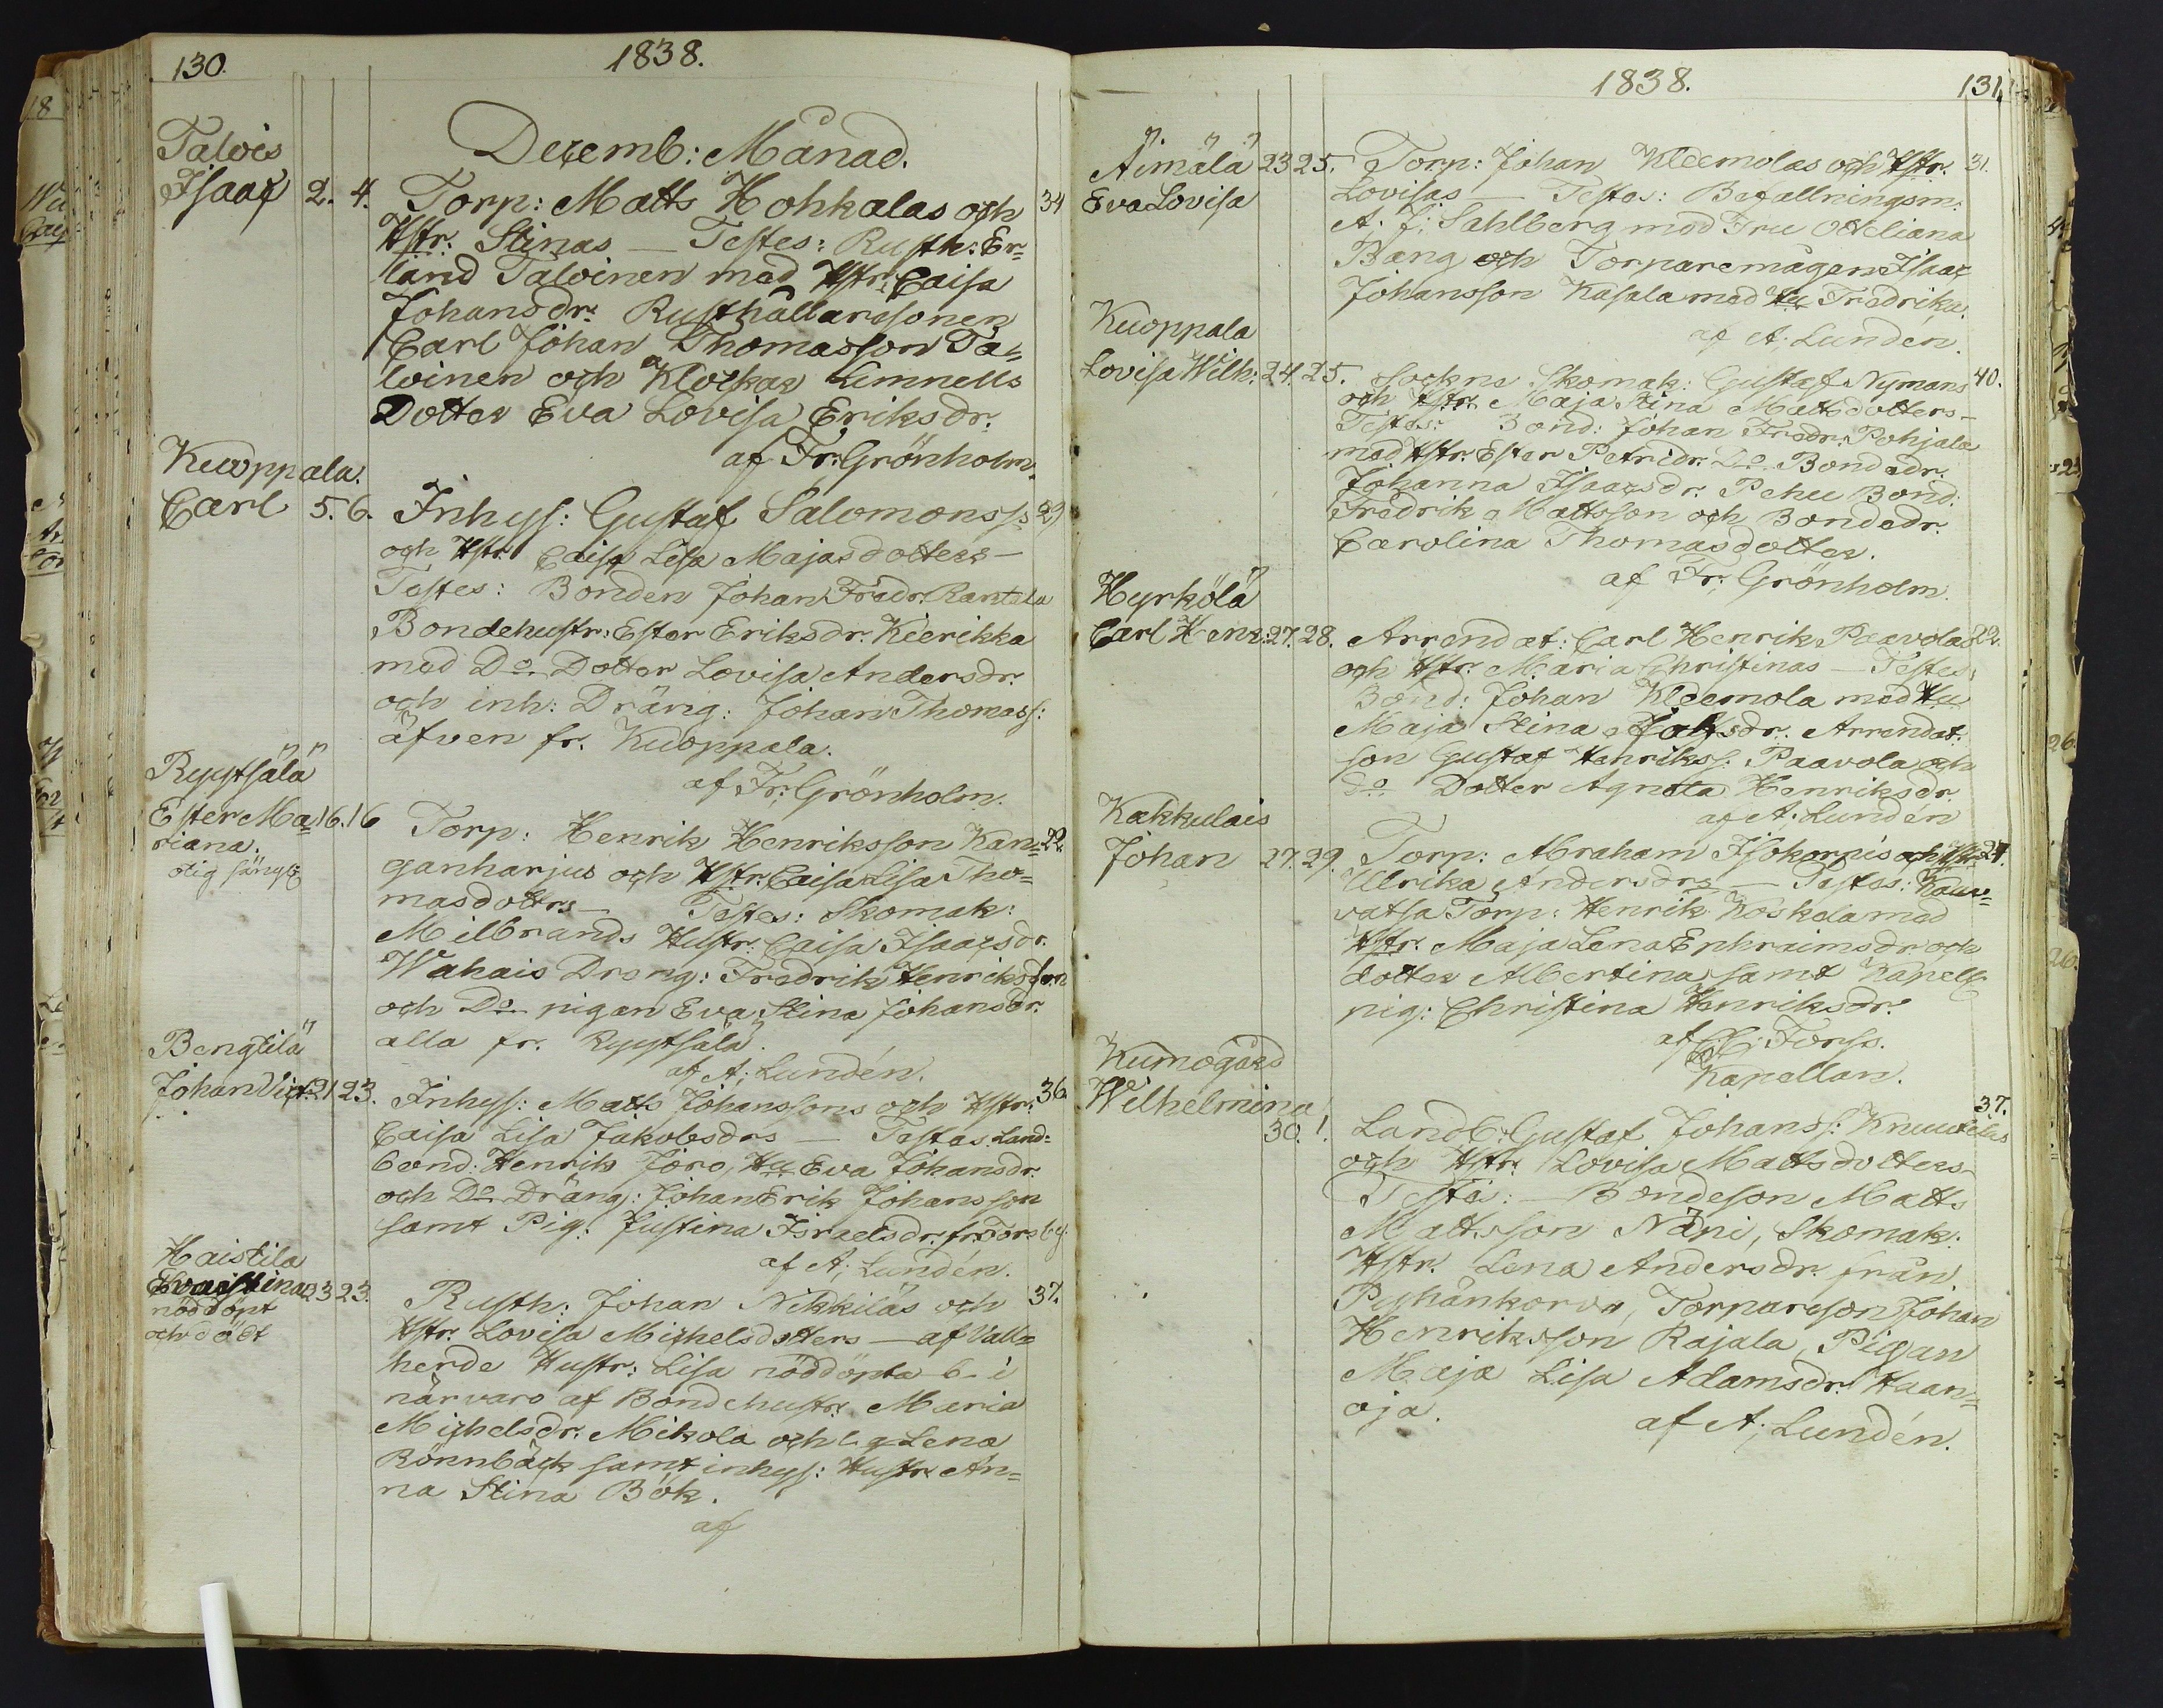 130.
1838.
Dezemb: Månad.
Talois
Isaac 2. 4. Torp: Matts Hohkalas och 34
Hstr. Stinas — Testes: Rusth: Er=
land Taloinen med Hstr. Caisa
Johansdr. Rusthållaresonen
Carl Johan Thomasson Ta=
loinen och Klockar Limnells
Dotter Eva Lovisa Eriksdr.
af Fr. Grönholm.
Kuoppala.
Carl 5. 6. Inhys: Gustaf Salomonss: 29
och Hstr. Caisa Lisa Majasdotters —
Testes: Bonden Johan Fredr. Rantala
Bondehustr: Ester Eriksdr. Kierikka
med Do Dotter Lovisa Andersdr.
och inh: Dräng: Johan Thomass:
äfven fr. Kuoppala.
af Fr. Grönholm.
Ryytsälä
Ester Ma= 16. 16 Torp: Henrik Henriksson Kan= 22.
riana.
ganharjus och Hstr. Caisa Lisa Tho=
masdotrs — Testes: Skomak:
Milbrands Hustr: Caisa Isaacsdr.
Wahais Dreng: Fredrik Henriksson
och Do pigan Eva Stina Johansdr.
alla fr. Ryytsälä.
af A; Lundén.
Bengtilä
Johan Vict: 21 23. Inhys: Matts Johanssons och Hstr. 36.
Caisa Lisa Jakobsdrs — Testes: Land=
bond: Henrik Jöro, Hu Eva Johansdr.
och Do Dräng: Johan Erik Johansson
samt Pig: Justina Israelsdr. fr. Torsby.
af A; Lundén.
Haistila
Eva Stina 23 23. Rusth: Johan Nikkiläs och 37.
nöddöpt
och dödt
Hstr. Lovisa Michelsdotters — af Vall=
herde Hustr: Lisa nöddöpta b– i
närvaro af Bondehustr: Maria
Michelsdr. Mikola och Lena
Rönnbäck samt inhys: Hustr. An=
na Stina Bök.
af
1838.
131.
Äimälä 23 25. Torp: Johan Kleemolas och Hstr. 31.
Eva Lovisa
Lovisas — Testes: Befallningsm:
A. J. Sahlberg med Fru Otteliana
Bang och Torparemågen Isaac
Johansson Kasala med Hu Fredrika.
af A; Lundén.
Kuoppala
Lovisa Wilh: 24. 25. Sockne Skomak: Gustaf Nymans 40.
och Hstr. Maja Stina Mattsdotters —
Testes: Bond: Johan Fredr. Pohjala
med Hstr. Ester Petridr. Do Bondedr.
Johanna Isaacsdr. Pehu Bond:
Fredrik Mattsson och Bondedr.
Carolina Thomasdotter.
af Fr. Grönholm.
Hyrkölä
Carl Henr: 27. 28. Arrendat: Carl Henrik Paavolas 22.
och Hstr. Maria Christinas — Testes:
Bond: Johan Kleemola med Hu
Maja Stina Jahsdr. Arrendat:
son Gustaf Henrikss: Paavola och
do Dotter Agneta Henriksdr.
af A; Lundén
Kakkulais
Johan 27. 29. Torp: Abraham Isokorpis och Hstr. 24.
Ulrika Andersdrs — Testes: Kau=
vatsa Torp: Henrik Koskela med
Hstr. Maja Lena Ephraimsdr. och
dotter Albertina samt Kapells
pig: Christina Henriksdr.
af Forss.
Kapellan.
Kumogård
Wilhelmina
30. 1. Landb: Gustaf Johanss: Knuutelas 37.
och Hstr. Lovisa Mattsdotters —
Testes: — Bondeson Matts
Mattsson Näpi, Skomak:
Hstr. Lena Andersdr. från
Pyhänkorva, Torpareson Johan
Henriksson Rajala, Pigan
Maja Lisa Adamsdr. Haan=
oja.
af A; Lundén.